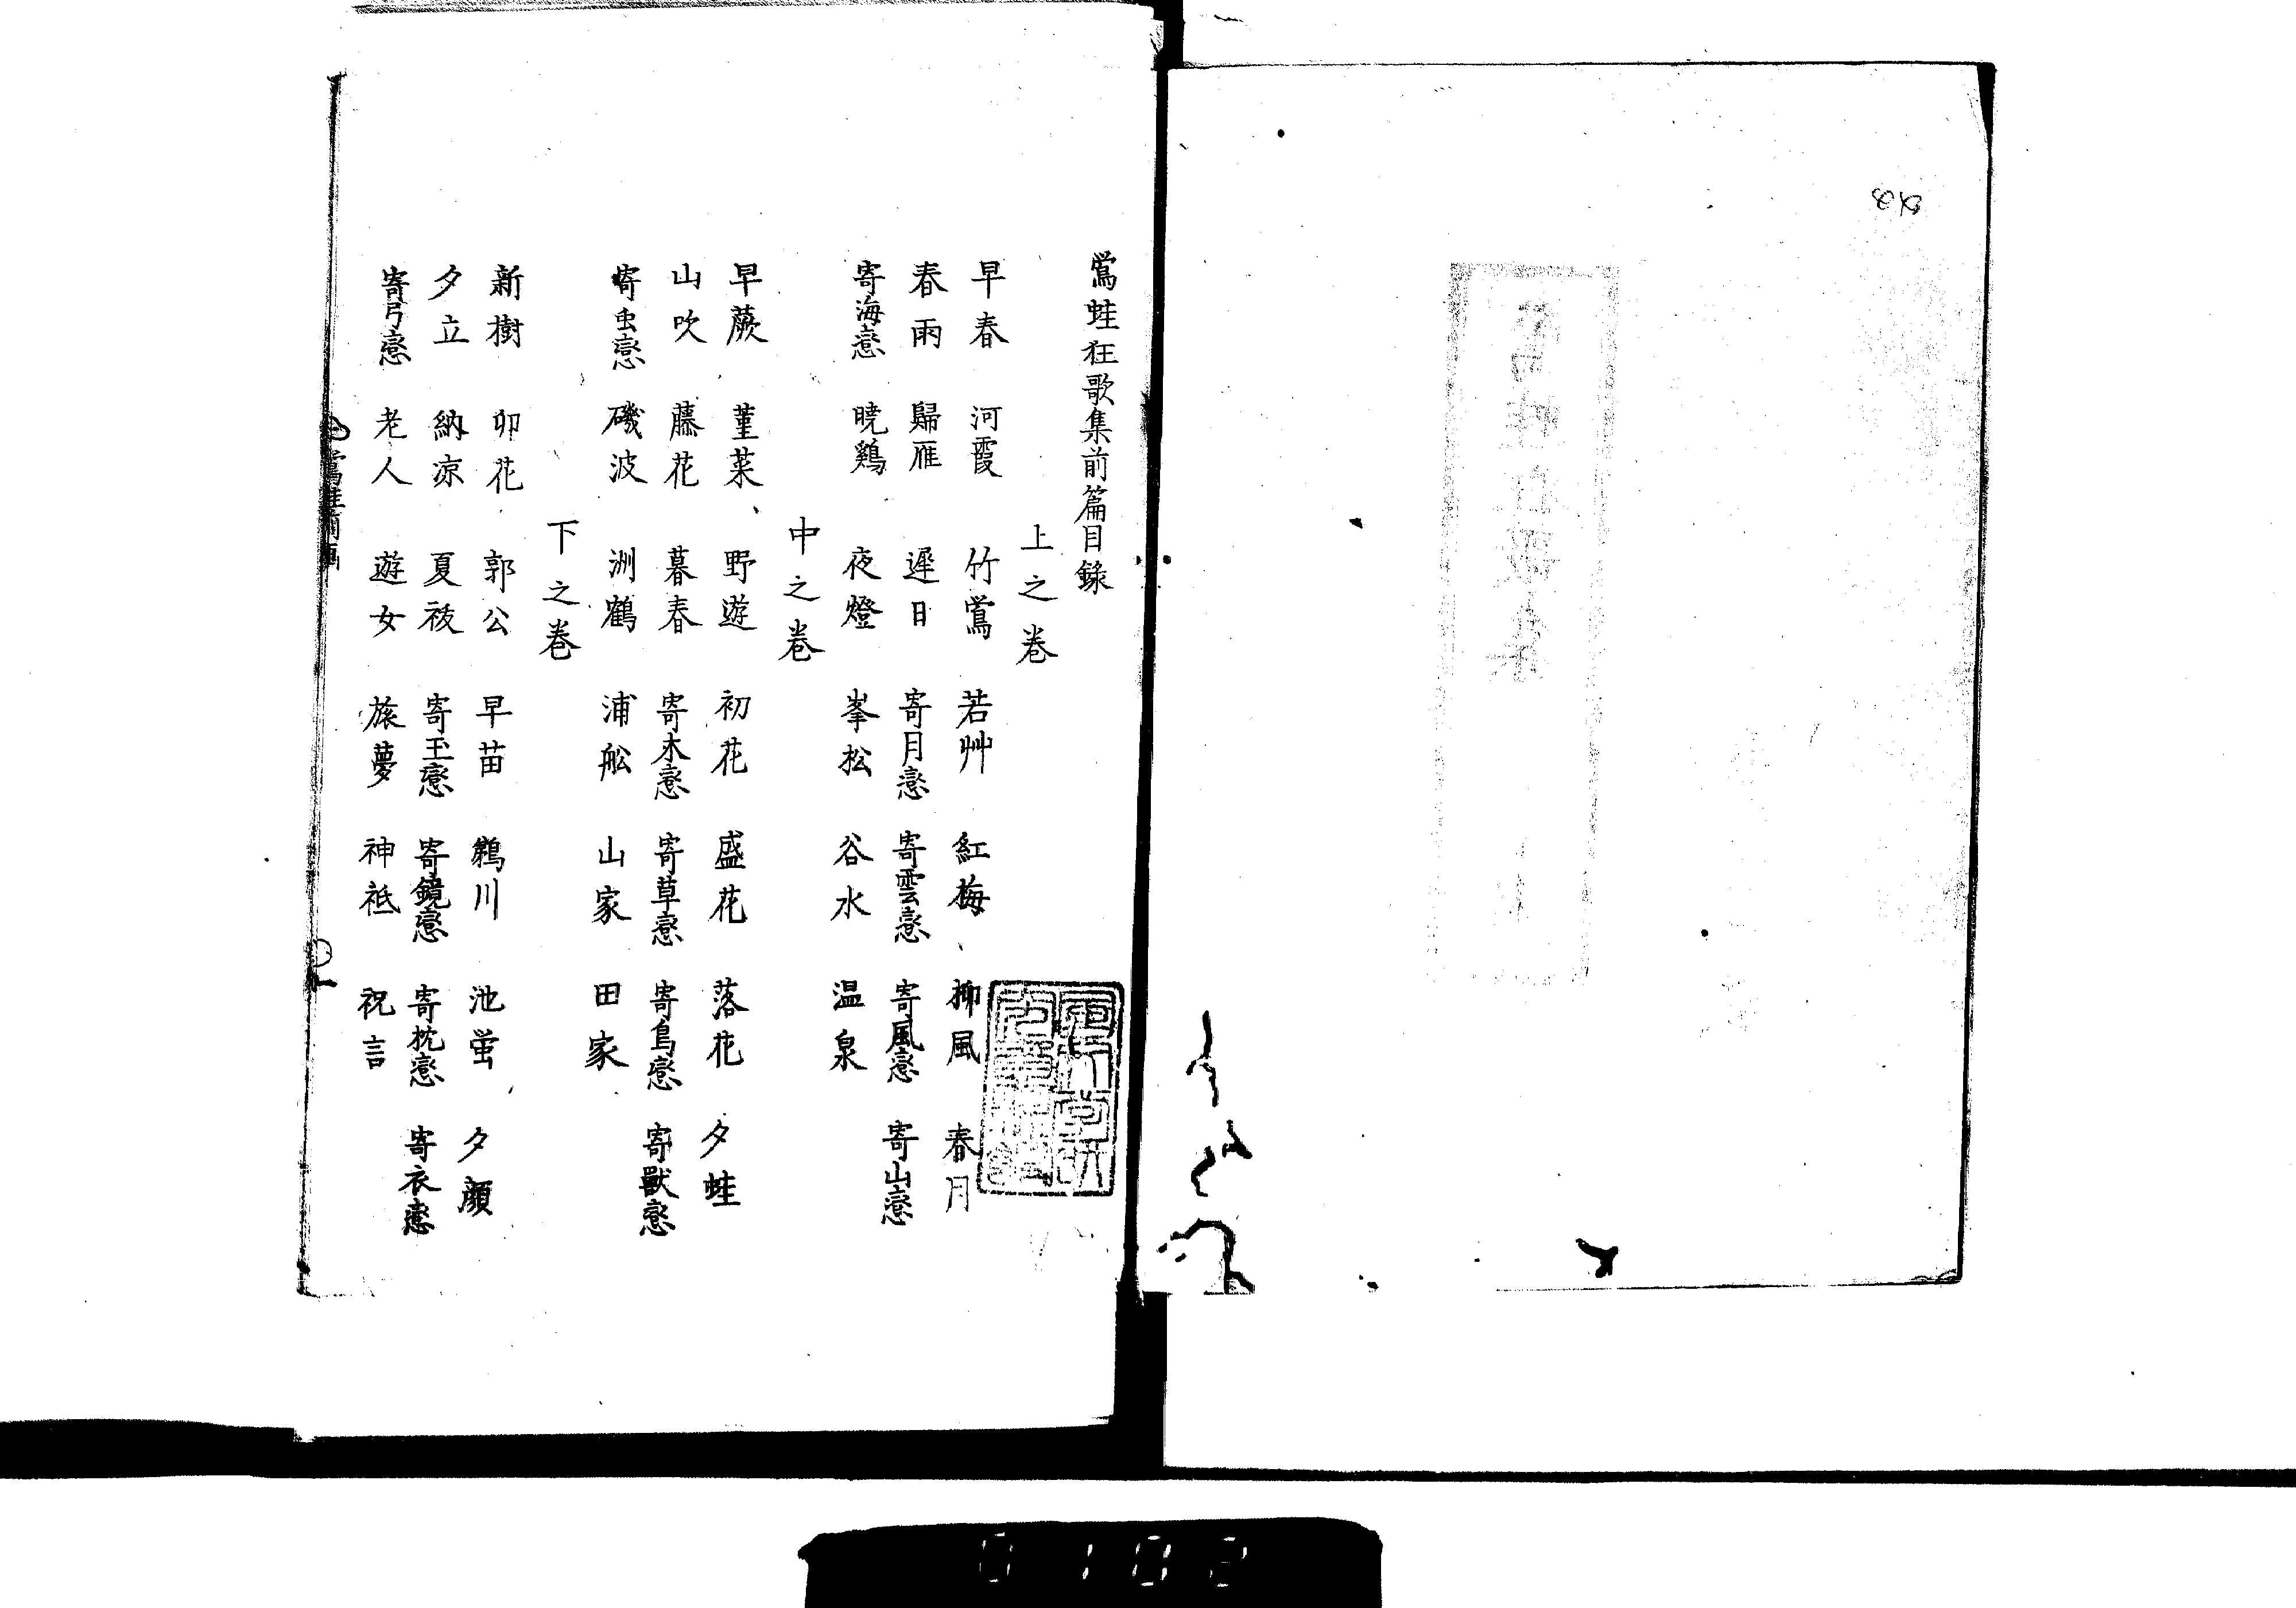 鴬蛙狂歌集前篇目録
上之巻
早春 河霞 竹鴬 若艸 紅梅 柳風 春月
春雨 歸雁 遲日 寄月戀 寄雲戀 寄風戀 寄山戀
寄海戀 暁鶏 夜燈 峯松 谷水 温泉
中之巻
早蕨 菫菜 野遊 初花 盛花 落花 夕蛙
山吹 藤花 暮春 寄木戀 寄草戀 寄鳥戀 寄獸戀
寄虫戀 磯波 洲鶴 浦舩 山家 田家
下之巻
新樹 卯花 郭公 早苗 鵜川 池蛍 夕顔
夕立 納凉 夏祓 寄玉戀 寄鏡戀 寄枕戀 寄衣戀
寄弓戀 老人 遊女 旅夢 神祇 祝言
0102